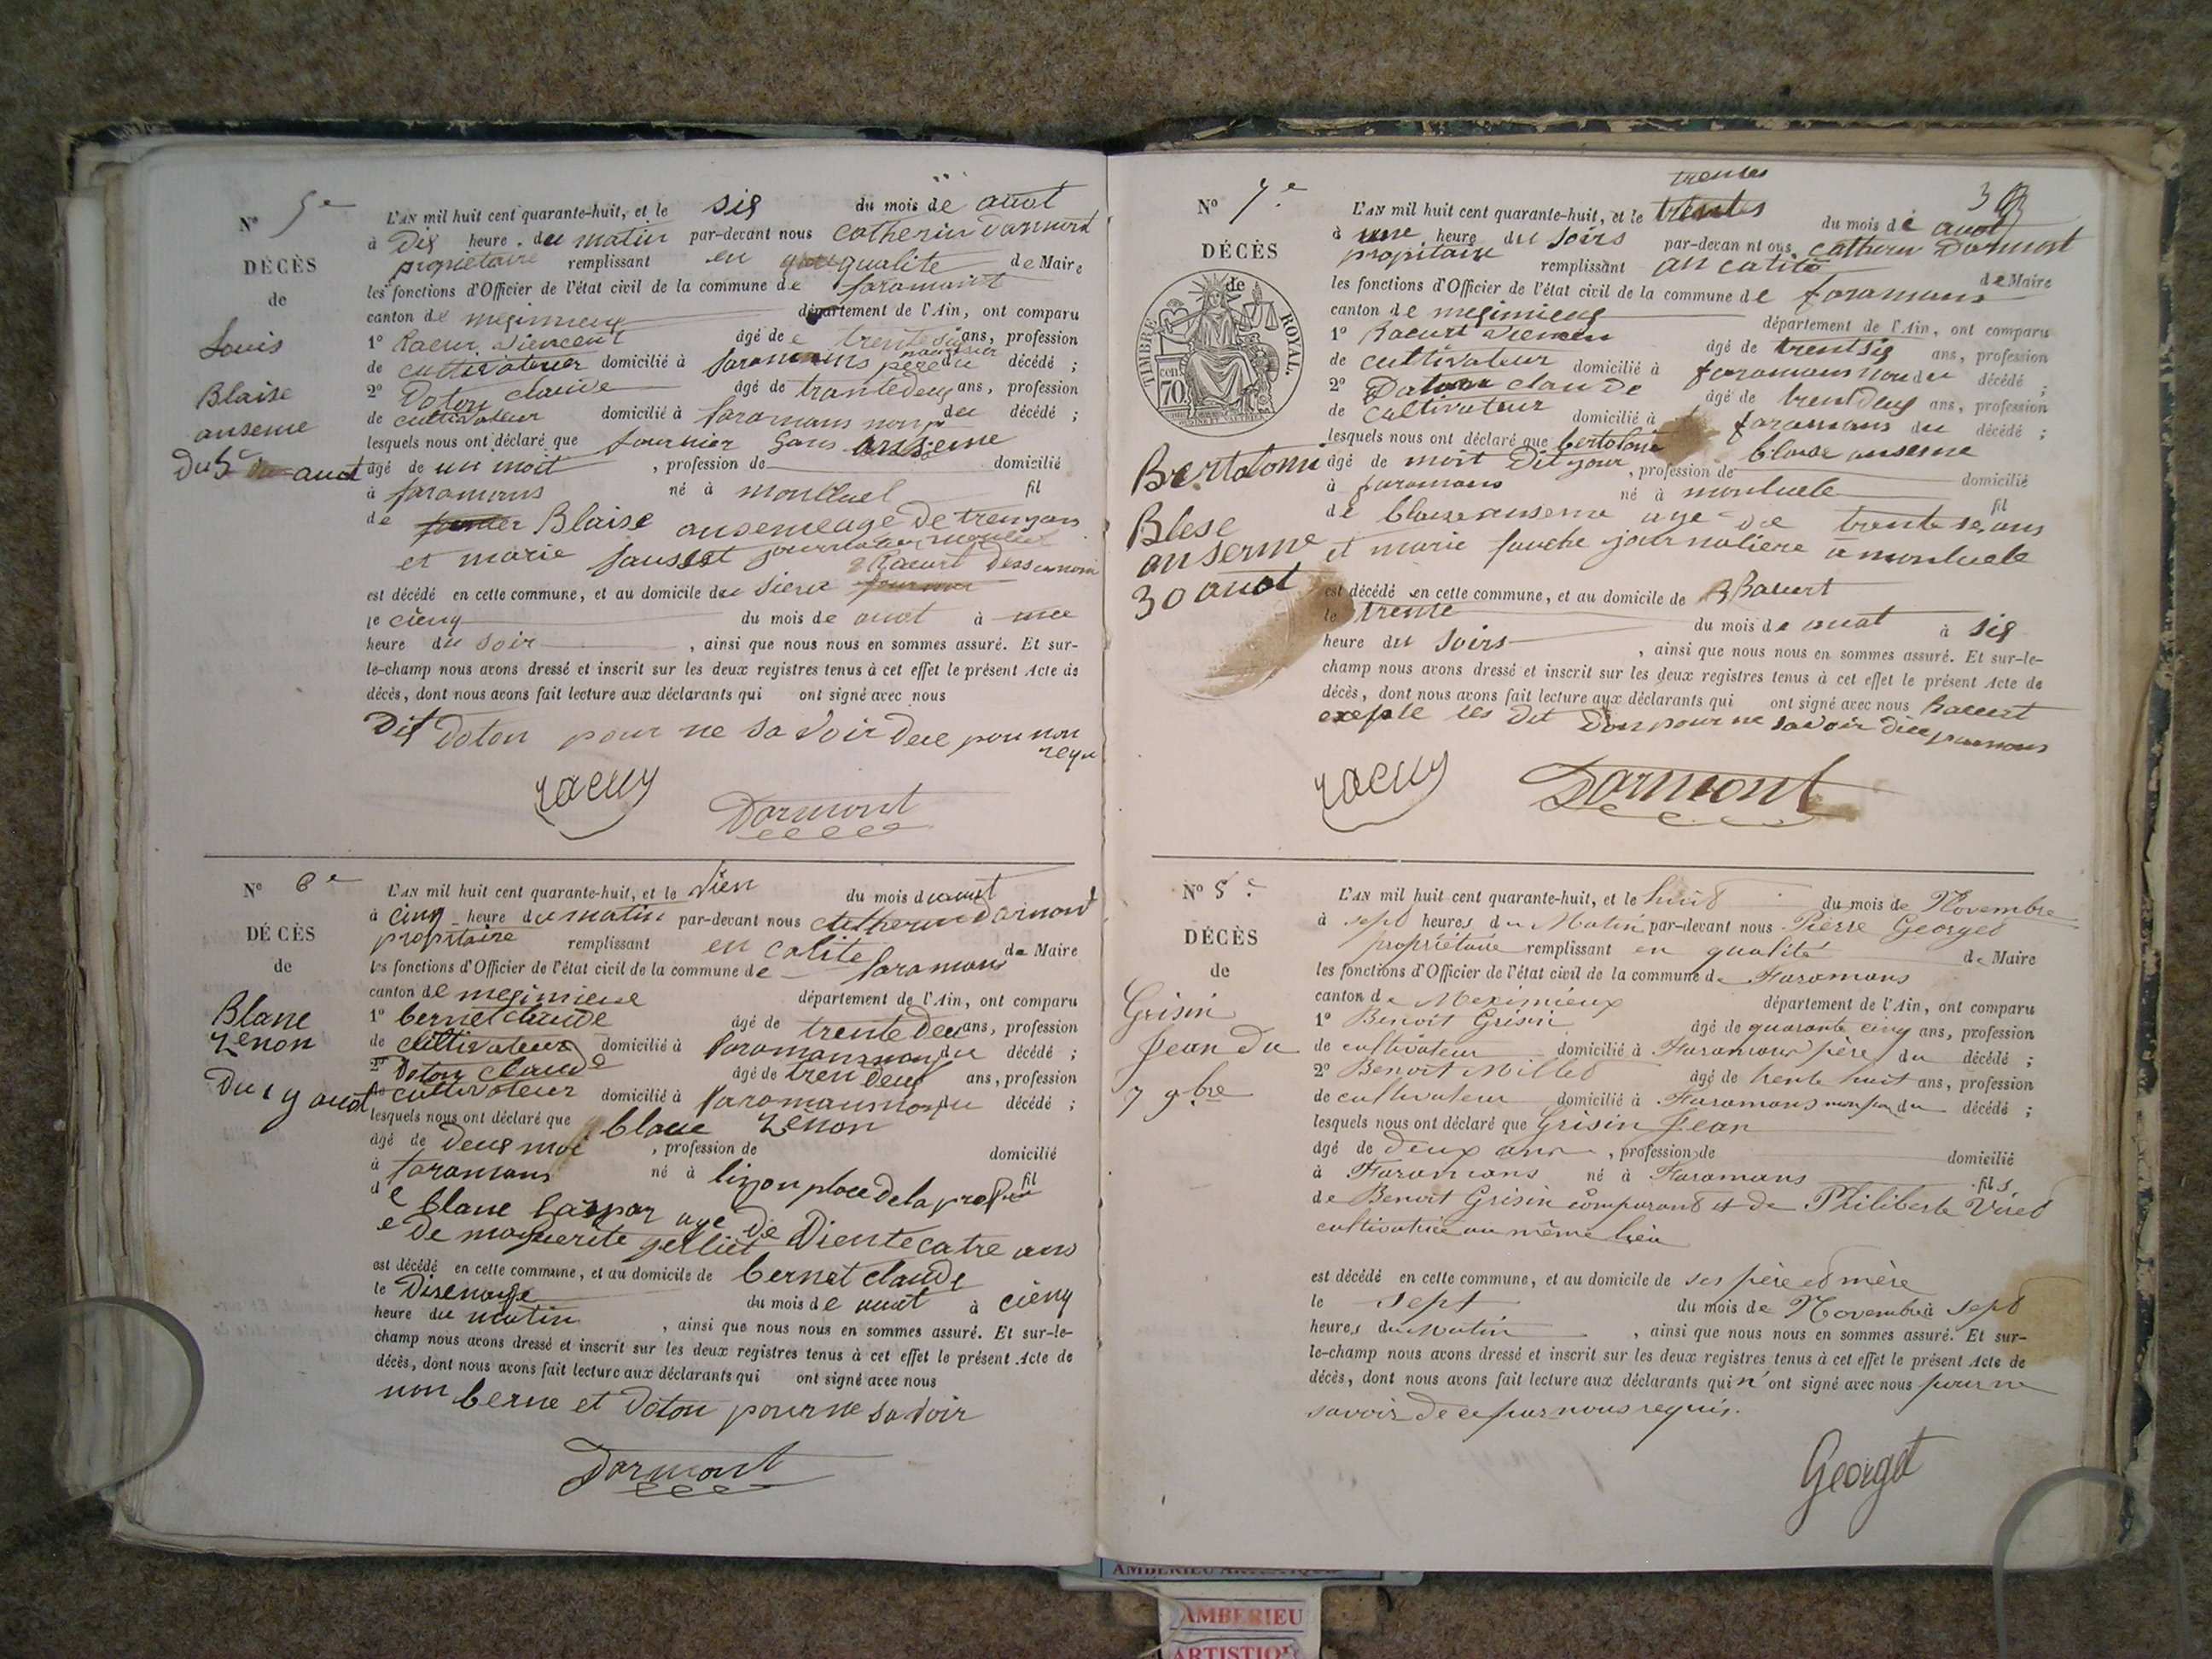 N° 5e
DÉCÈS
de
Louis
Blaise
anseme
du 5e auot
L'AN mil huit cent quarante-huit, et le sis du mois de auot
à Dis heure du matin par-devant nous catherin Darmont
propietaire remplissant en qualite de Maire
les fonctions d'Officier de l'état civil de la commune de faramans
canton de mesimieux département de l'Ain, ont comparu
1° Raeur Viencent âgé de trente sis ans, profession
de cultivateur domicilié à faramans père nourisier du décédé ;
2° Doton claude âgé de trantedeus ans, profession
de cultivateur domicilié à faramans non du décédé ;
lesquels nous ont déclaré que fournier anseme
âgé de un moit , profession de domicilié
à faramans né à montluel fil
de Blaise anseme age de ans
et marie
est décédé en cette commune, et au domicile du sieur
le cienq du mois de auot à une
heure du soir , ainsi que nous nous en sommes assuré. Et sur-
le-champ nous avons dressé et inscrit sur les deux registres tenus à cet effet le présent Acte de
décès, dont nous avons fait lecture aux déclarants qui ont signé avec nous
Dit Doton pour ne sa voir dece pou nou
requ
racur
Darmont
N° 6e
DÉCÈS
de
Blane
zenon
Du 19 auot
L'AN mil huit cent quarante-huit, et le vien du mois d auot
à cinq heure du matin par-devant nous catherin Darmont
propitaire remplissant en calite de Maire
les fonctions d'Officier de l'état civil de la commune de faramans
canton de mesimieue département de l'Ain, ont comparu
1° bernet claude âgé de trente deu ans, profession
de cultivateur domicilié à faramans non du décédé ;
2° Doton claude âgé de tren deus ans, profession
de cultivateur domicilié à faramans non du décédé ;
lesquels nous ont déclaré que blane zenon
âgé de deus moi , profession de domicilié
à faramans né à place de la fil
de blane Gaspar age de
e De marguerite Vientecatre ans
est décédé en cette commune, et au domicile de bernet claude
le Disenoufe du mois de auot à cienq
heure du matin , ainsi que nous nous en sommes assuré. Et sur-le-
champ nous avons dressé et inscrit sur les deux registres tenus à cet effet le présent Acte de
décès, dont nous avons fait lecture aux déclarants qui ont signé avec nous
non berne et Doton pour ne savoir
Darmont
N° 7e
DÉCÈS
de
TIMBRE ROYAL
70 cen
Bertolomi
Blese
anserme
30 auot
trentes
L'AN mil huit cent quarante-huit, et le trentes du mois de auot
à une heure du soirs par-devan nt ous catherin Darmont
propitaire remplissant an calite de Maire
les fonctions d'Officier de l'état civil de la commune de faramans
canton de mesimieus département de l'Ain, ont comparu
1° Raeurt Viencen âgé de trentsis ans, profession
de cultivateur domicilié à faramans non du décédé ;
2° Doton claude âgé de trentdeus ans, profession
de cultivateur domicilié à faramans du décédé ;
lesquels nous ont déclaré que bertolomi blaise anseme
âgé de moit Dit jour , profession de domicilié
à faramans né à montuele fil
de blaise anseme age de trente se ans
et marie fauche journaliere a montuele
est décédé en cette commune, et au domicile de Raeurt
le trente du mois de auat à sis
heure du soirs , ainsi que nous nous en sommes assuré. Et sur-le-
champ nous avons dressé et inscrit sur les deux registres tenus à cet effet le présent Acte de
décès, dont nous avons fait lecture aux déclarants qui ont signé avec nous Raeurt
les dit pour ne savoir dece parnous
racur
Darmont
N° 8e
DÉCÈS
de
Grisin
Jean du
7 9bre
L'AN mil huit cent quarante-huit, et le huit du mois de Novembre
à sept heures du Matin par-devant nous Pierre Georget
propriétaire remplissant en qualité de Maire
les fonctions d'Officier de l'état civil de la commune de Faramans
canton de Meximieux département de l'Ain, ont comparu
1° Benoit Grisin âgé de quarante cinq ans, profession
de cultivateur domicilié à Faramans père du décédé ;
2° Benoit Millet âgé de trente huit ans, profession
de cultivateur domicilié à Faramans non par. du décédé ;
lesquels nous ont déclaré que Grisin Jean
âgé de deux ans , profession de domicilié
à Faramans né à Faramans fils
de Benoit Grisin comparant et de Philiberte Viret
cultivatrice au même lieu
est décédé en cette commune, et au domicile de ses père et mère
le sept du mois de Novembre à sept
heures du Matin , ainsi que nous nous en sommes assuré. Et sur-
le-champ nous avons dressé et inscrit sur les deux registres tenus à cet effet le présent Acte de
décès, dont nous avons fait lecture aux déclarants qui n'ont signé avec nous pour ne
savoir de ce par nous requis.
Georget
AMBERIEU ARTISTIQUE
AMBERIEU
ARTISTIQ